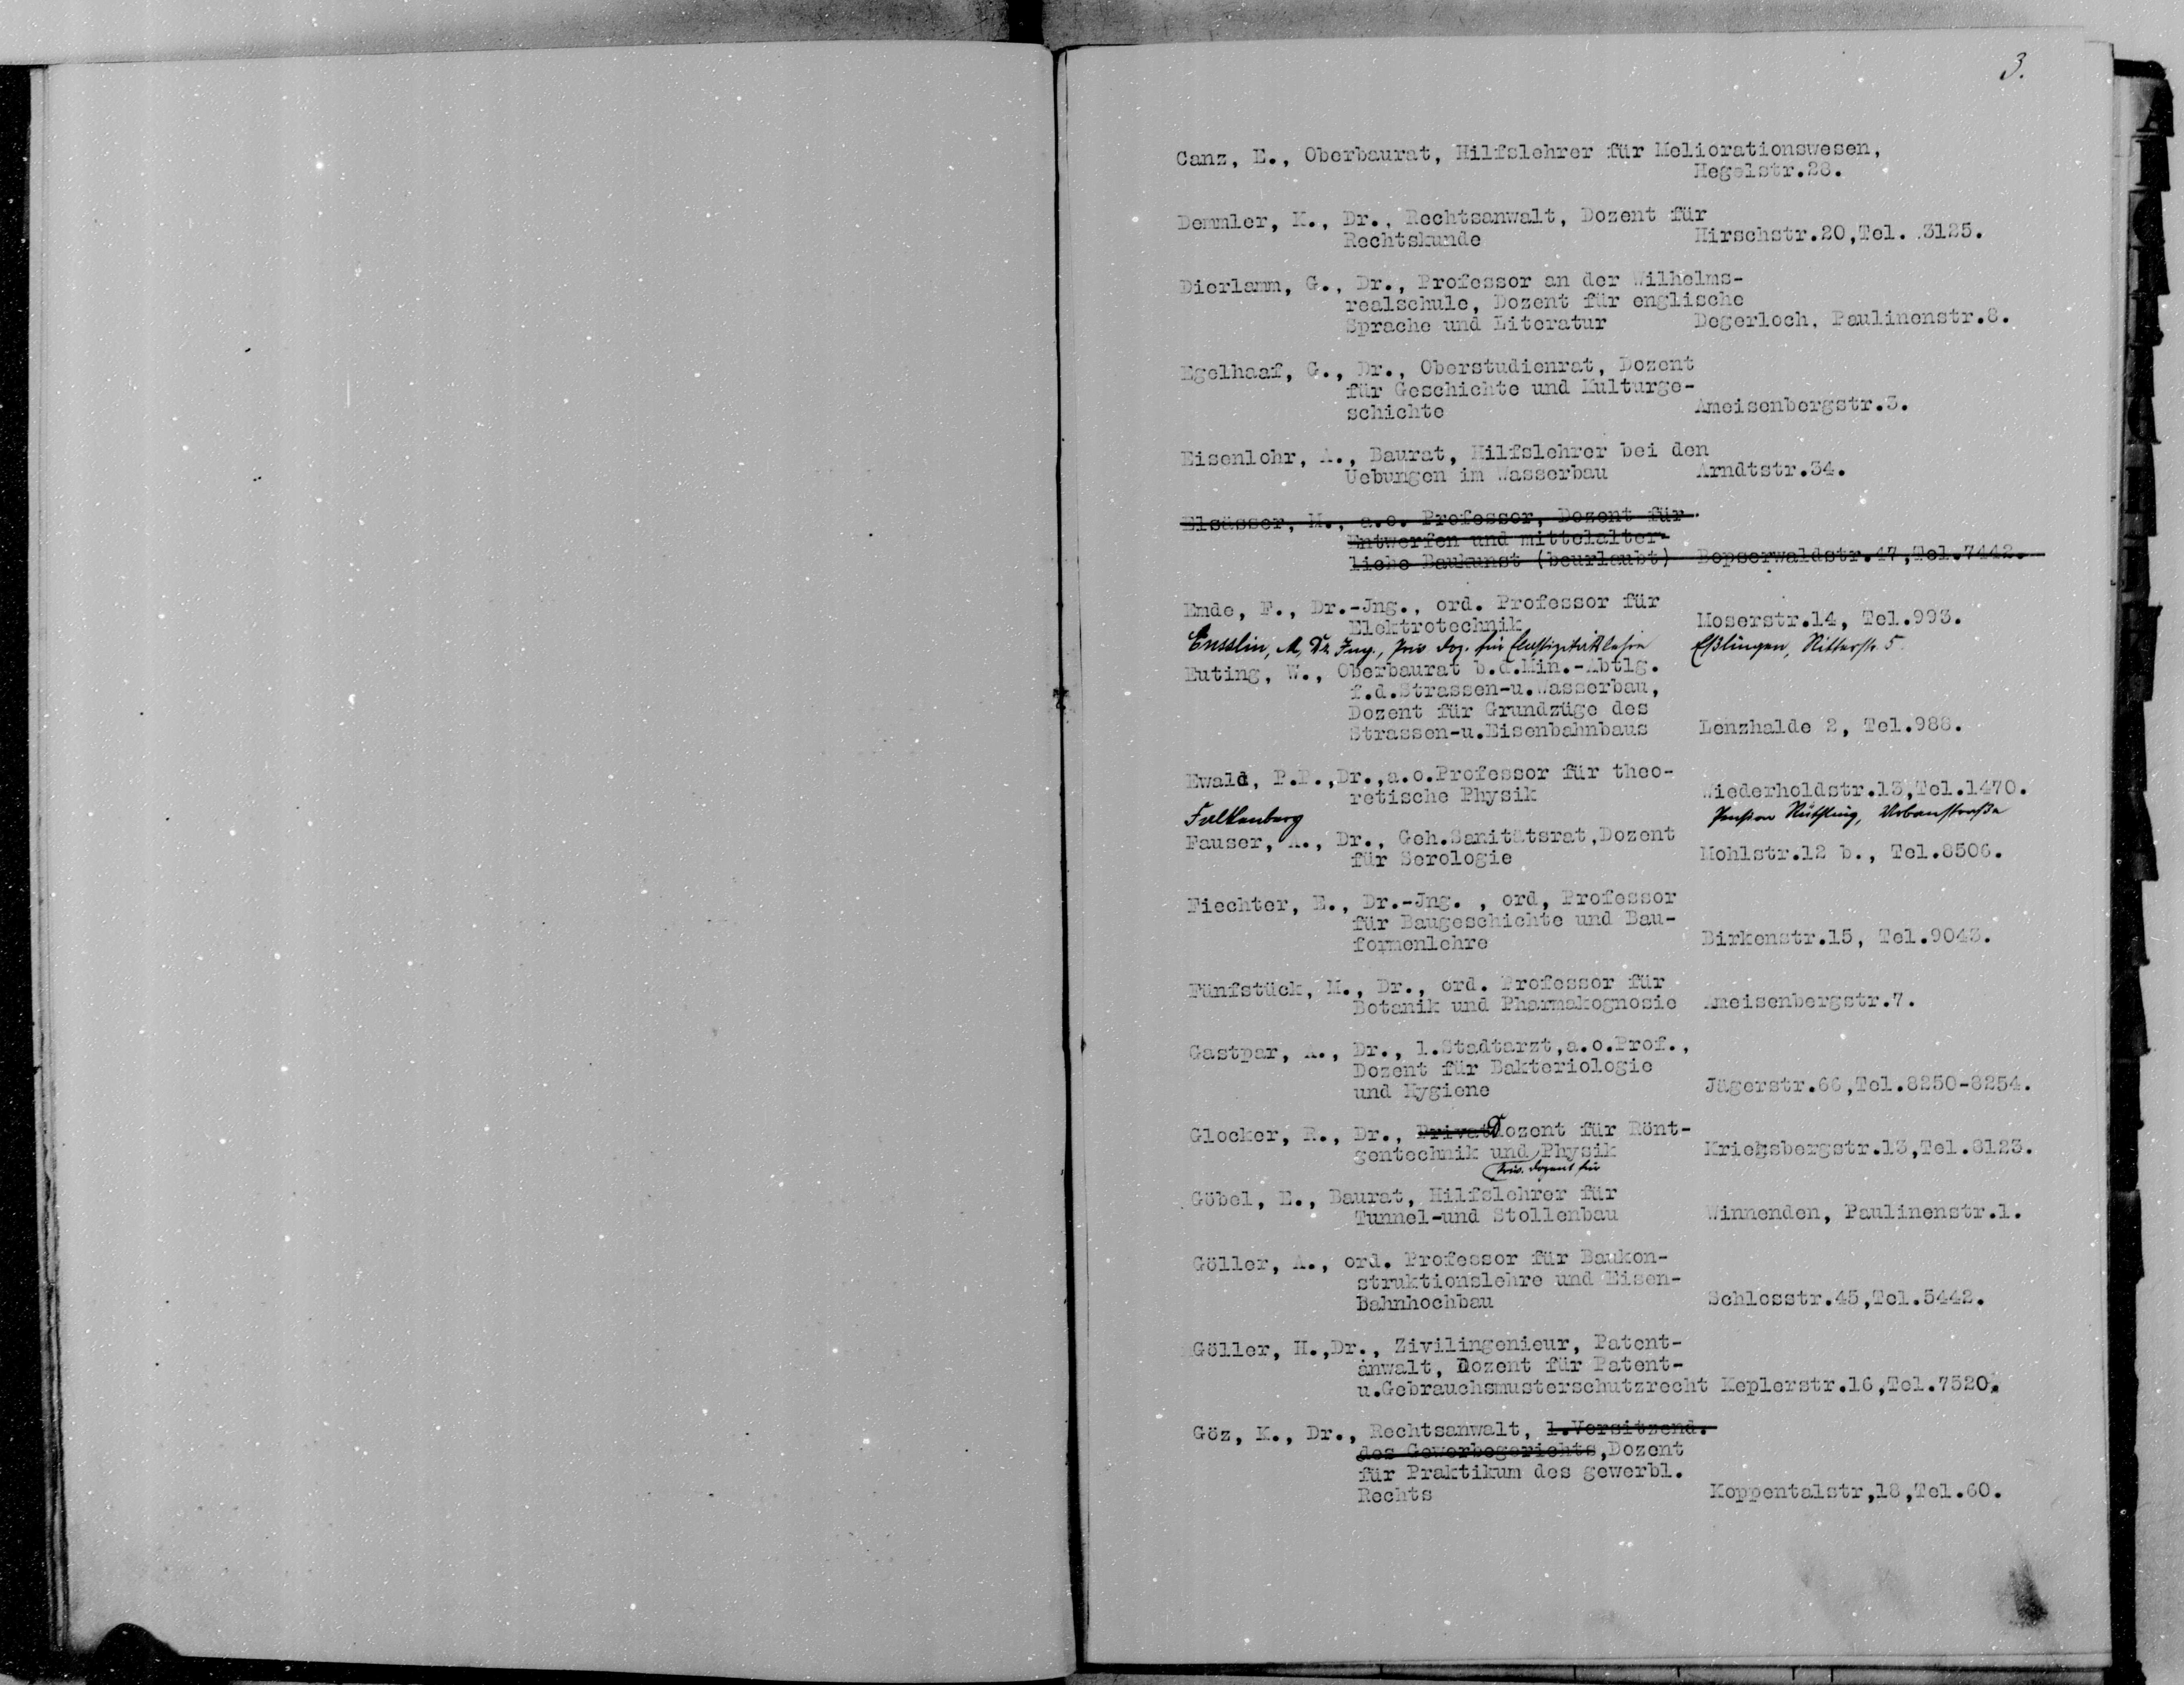 3.
Canz, E., Oberbaurat, Hilfslehrer für Meliorationswesen,
Hegelstr.28.
Demmler, K., Dr., Rechtsanwalt, Dozent für
Rechtskunde Hirschstr.20,Tel. 3125.
Dierlamm, G., Dr., Professor an der Wilhelms-
realschule, Dozent für englische
Sprache und Literatur Degerloch, Paulinenstr.8.
Egelhaaf, G., Dr., Oberstudienrat, Dozent
für Geschichte und Kulturge-
schichte Ameisenbergstr.3.
Eisenlohr, A., Baurat, Hilfslehrer bei den
Uebungen im Wasserbau Arndtstr.34.
Elsässer, M., a.o. Professor, Dozent für
Entwerfen und mittelalter-
liche Baukunst (beurlaubt) Bopserwaldstr.47,Tel.7442.
Emde, F., Dr.-Jng., ord. Professor für
Elektrotechnik Moserstr.14, Tel.993.
Ensslin, M, Dr. Ing., Priv. Doz. für Elastizitätslehre Eßlingen, Ritterstr. 5
Euting, W., Oberbaurat b.d.Min.-Abtlg.
f.d.Strassen-u.Wasserbau,
Dozent für Grundzüge des
Strassen-u.Eisenbahnbaus Lenzhalde 2, Tel.988.
Ewald, P.P.,Dr.,a.o.Professor für theo-
retische Physik Wiederholdstr.13,Tel.1470.
Falkenberg Pension Urbanstraße
Fauser, A., Dr., Geh.Sanitätsrat,Dozent
für Serologie Mohlstr.12 b., Tel.8506.
Fiechter, E., Dr.-Jng. , ord, Professor
für Baugeschichte und Bau-
formenlehre Birkenstr.15, Tel.9043.
Fünfstück, M., Dr., ord. Professor für
Botanik und Pharmakognosie Ameisenbergstr.7.
Gastpar, A., Dr., 1.Stadtarzt,a.o.Prof.,
Dozent für Bakteriologie
und Hygiene Jägerstr.66,Tel.8250-8254.
Glocker, R., Dr., PrivatDozent für Rönt-
gentechnik und Physik Kriegsbergstr.13,Tel.8123.
Priv. Dozent für
Göbel, E., Baurat, Hilfslehrer für
Tunnel-und Stollenbau Winnenden, Paulinenstr.1.
Göller, A., ord. Professor für Baukon-
struktionslehre und Eisen-
Bahnhochbau Schlosstr.45,Tel.5442.
Göller, H.,Dr., Zivilingenieur, Patent-
anwalt, Dozent für Patent-
u.Gebrauchsmusterschutzrecht Keplerstr.16,Tel.7520.
Göz, K., Dr., Rechtsanwalt, 1.Vorsitzend.
des Gewerbegerichts,Dozent
für Praktikum des gewerbl.
Rechts Koppentalstr,18,Tel.60.